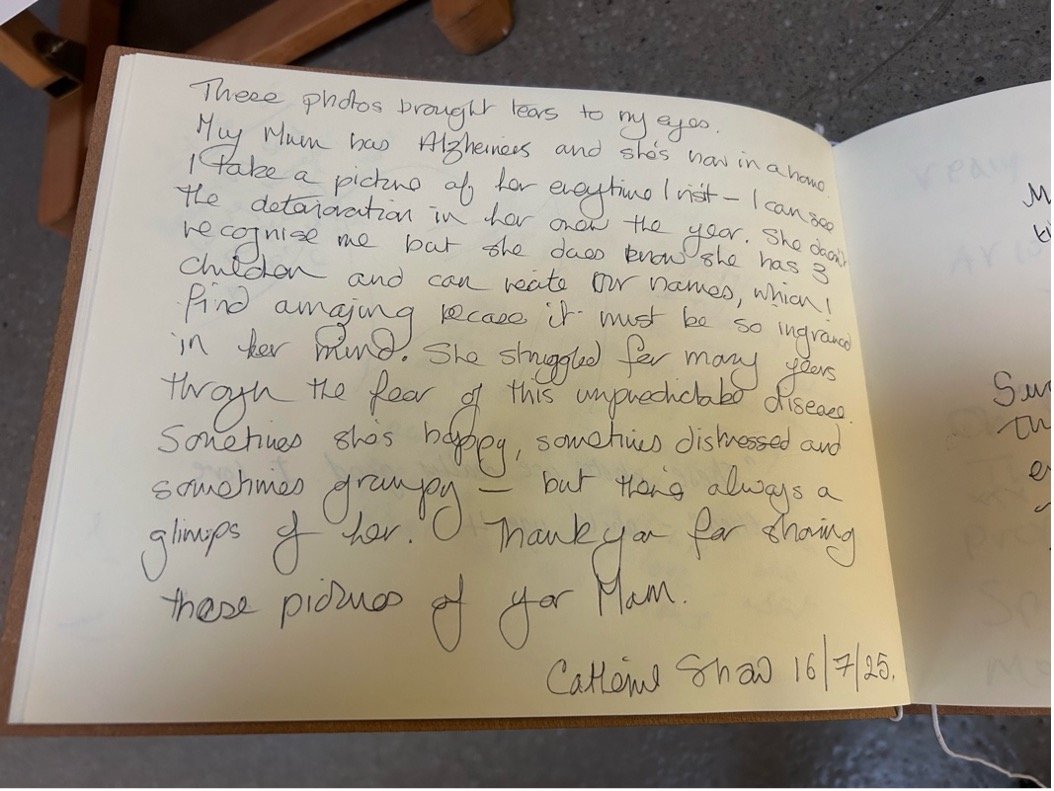 These photos brought tears to my eyes.
My Mum has Alzheimers and she's now in a home.
I take a picture of her everytime I visit – I can see
the deterioration in her over the year. She doesn't
recognise me but she does know she has 3
children and can recite our names, which I
find amazing because it must be so ingrained
in her mind. She struggled for many years
through the fear of this unpredictable disease.
Sometimes she's happy, sometimes distressed and
sometimes grumpy – but there's always a
glimps of her. Thank you for sharing
these pictures of your Mam.
Catherine Shaw 16/7/25.